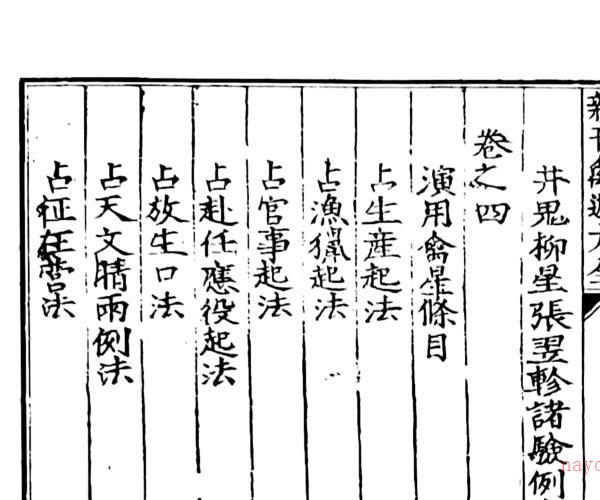 井鬼柳星張翌軫諸驗例
卷之四
演用禽星條目
占生產起法
占漁獵起法
占官事起法
占赴任應役起法
占放生口法
占天文晴雨例法
占征在营法
nayo